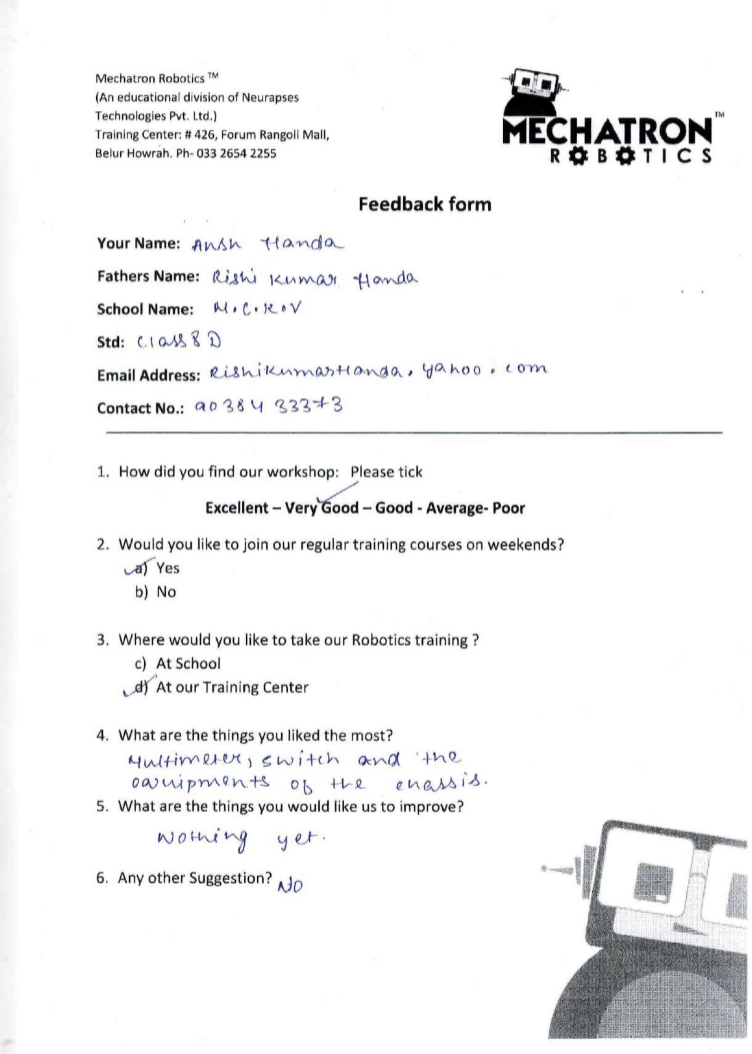 Mechatron Robotics ™
(An educational division of Neurapses
Technologies Pvt. Ltd.)
Training Center: # 426, Forum Rangoli Mall,
Belur Howrah. Ph- 033 2654 2255
MECHATRON™
ROBOTICS
Feedback form
Your Name: Ansh Handa
Fathers Name: Rishi Kumar Handa
School Name: M.C.K.V
Std: Class 8 D
Email Address: RishikumarHanda. yahoo . com
Contact No.: 90384 33373
1. How did you find our workshop: Please tick
Excellent – Very Good – Good - Average- Poor
2. Would you like to join our regular training courses on weekends?
a) Yes
b) No
3. Where would you like to take our Robotics training ?
c) At School
d) At our Training Center
4. What are the things you liked the most?
Multimeter, switch and the
of the chassis.
5. What are the things you would like us to improve?
Nothing yet.
6. Any other Suggestion? NO